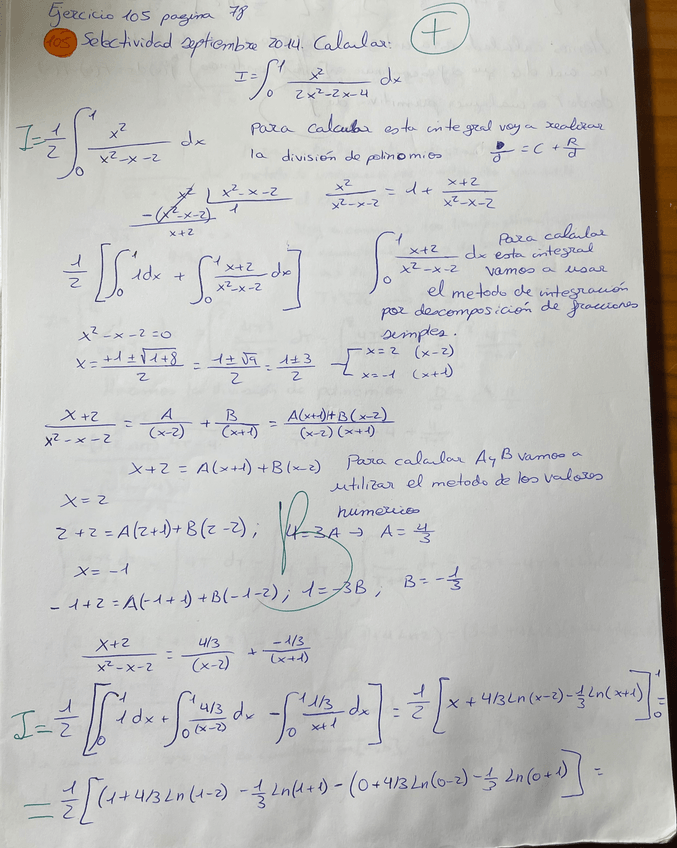 Ejercicio 105 pagina 78
105 Selectividad septiembre 2014. Calcular: +
I=∫₀¹ x²/(2x²-2x-4) dx
I=1/2 ∫₀¹ x²/(x²-x-2) dx Para calcular esta integral voy a realizar
la división de polinomios D/d = C + R/d
x² | x²-x-2
-(x²-x-2) 1 x²/(x²-x-2) = 1 + (x+2)/(x²-x-2)
x+2
1/2 [∫₀¹ 1dx + ∫₀¹ (x+2)/(x²-x-2) dx] ∫₀¹ (x+2)/(x²-x-2) dx Para calcular
esta integral
vamos a usar
el metodo de integración
por descomposición de fracciones
simples.
x²-x-2=0
x = (+1±√(1+8))/2 = (1±√9)/2 = (1±3)/2 x=2 (x-2)
x=-1 (x+1)
(x+2)/(x²-x-2) = A/(x-2) + B/(x+1) = (A(x+1)+B(x-2))/((x-2)(x+1))
x+2 = A(x+1)+B(x-2) Para calcular A y B vamos a
utilizar el metodo de los valores
numericos
x=2
2+2=A(2+1)+B(2-2); 4=3A → A=4/3
x=-1
-1+2=A(-1+1)+B(-1-2); 1=-3B, B=-1/3
(x+2)/(x²-x-2) = (4/3)/(x-2) + (-1/3)/(x+1)
I=1/2 [∫₀¹ 1dx + ∫₀¹ (4/3)/(x-2) dx - ∫₀¹ (1/3)/(x+1) dx] = 1/2 [x+4/3 Ln(x-2)-1/3 Ln(x+1)]₀¹ =
= 1/2 [(1+4/3 Ln(1-2) - 1/3 Ln(1+1) - (0+4/3 Ln(0-2) - 1/3 Ln(0+1)] =